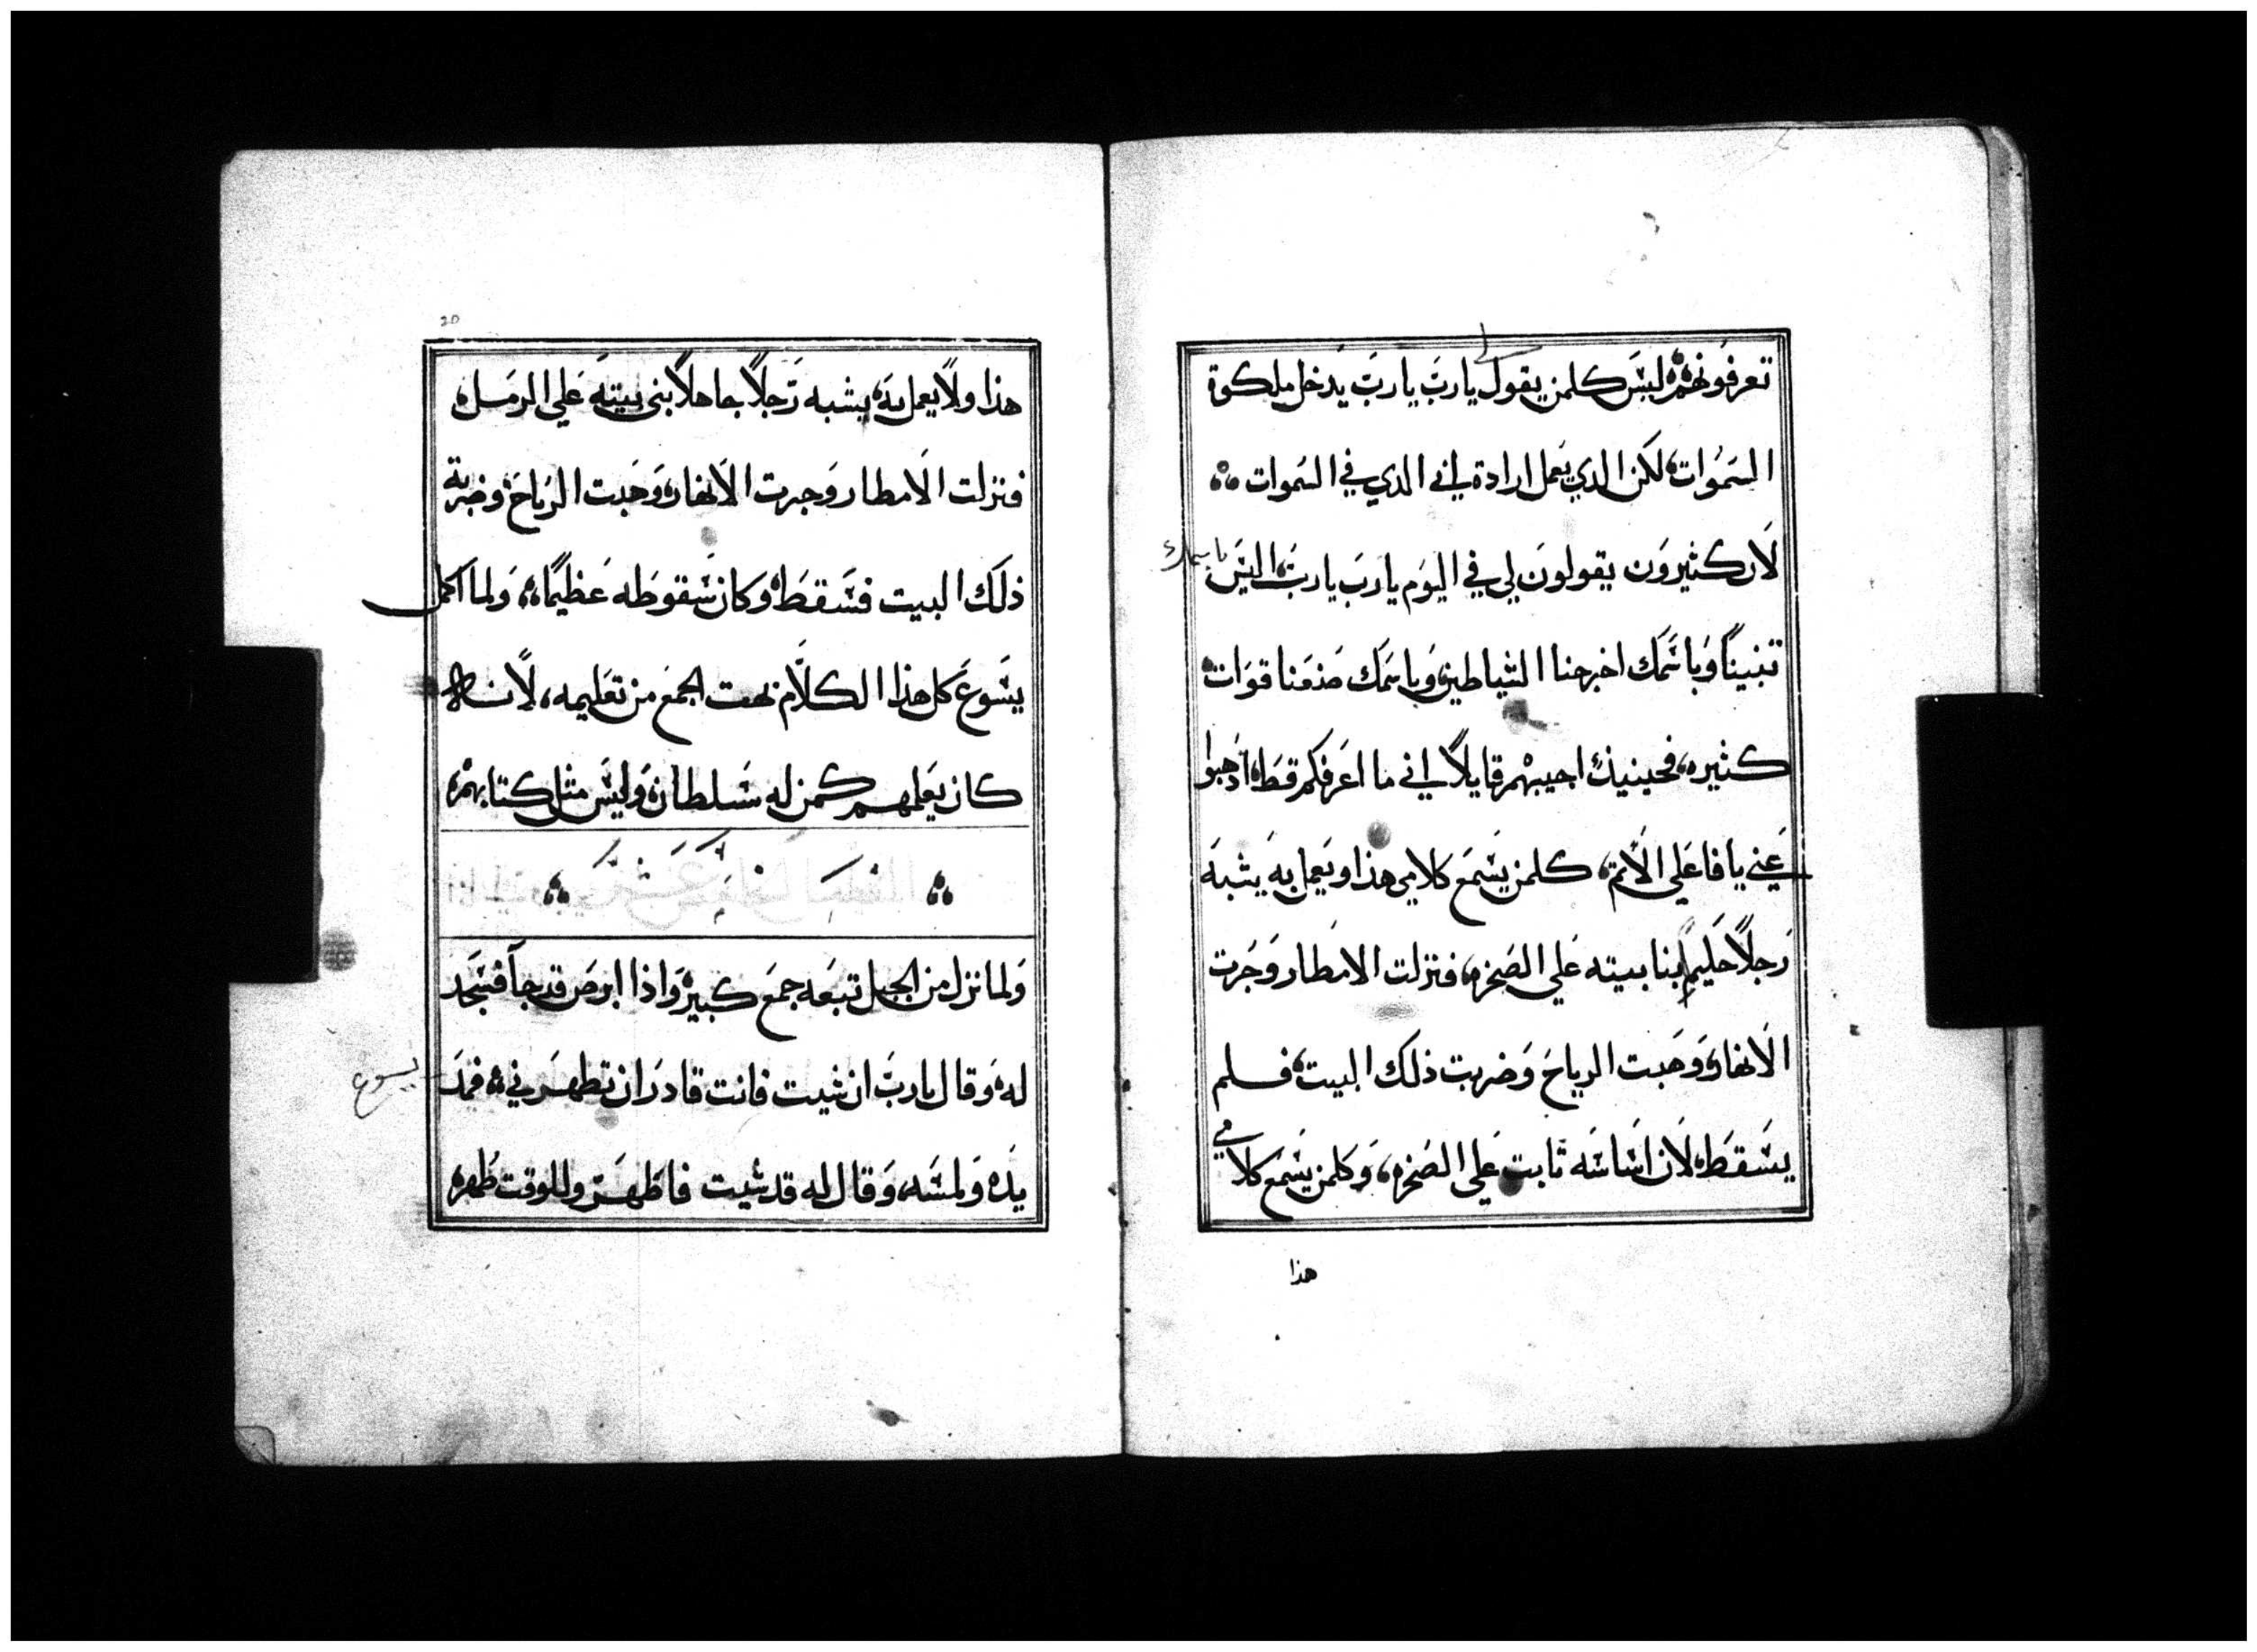 تعرفونهم ليس كلمن يقول لي يارب يارب يدخل ملكوة
السموات لكن الدي يعمل ارادة ابي الدي في السموات
لان كثيرون يقولون لي في اليوم يارب يارب اليس باسمك
تنبينا وباسمك اخرجنا الشياطين وباسمك صنعنا قوات
كثيره فحينيذ اجيبهم قايلا اني ما اعرفكم قط اذهبوا
عني يا فاعلي الاثم كلمن يسمع كلامي هذا ويعمل به يشبه
رجلا حليما بنا بيته علي الصخره فنزلت الامطار وجرت
الانهار وهبت الرياح وضربت ذلك البيت فلم
يسقط لان اساسه ثابت علي الصخره وكلمن يسمع كلامي
هذا
20
هذا ولا يعمل به يشبه رجلا جاهلا بنى بيته علي الرمل
فنزلت الامطار وجرت الانهار وهبت الرياح وضربة
ذلك البيت فسقط وكان سقوطه عظيما ولما اكمل
يسوع كل هذا الكلام بهت الجمع من تعليمه لانه
كان يعلمهم كمن له سلطان وليس مثل كتابهم
ولما نزل من الجبل تبعه جمع كبير واذا ابرص قد جآ فسجد
له وقال يارب ان شيت فانت قادر ان تطهرني فمد يسوع
يده ولمسه وقال له قد شيت فاطهر وللوقت طهره